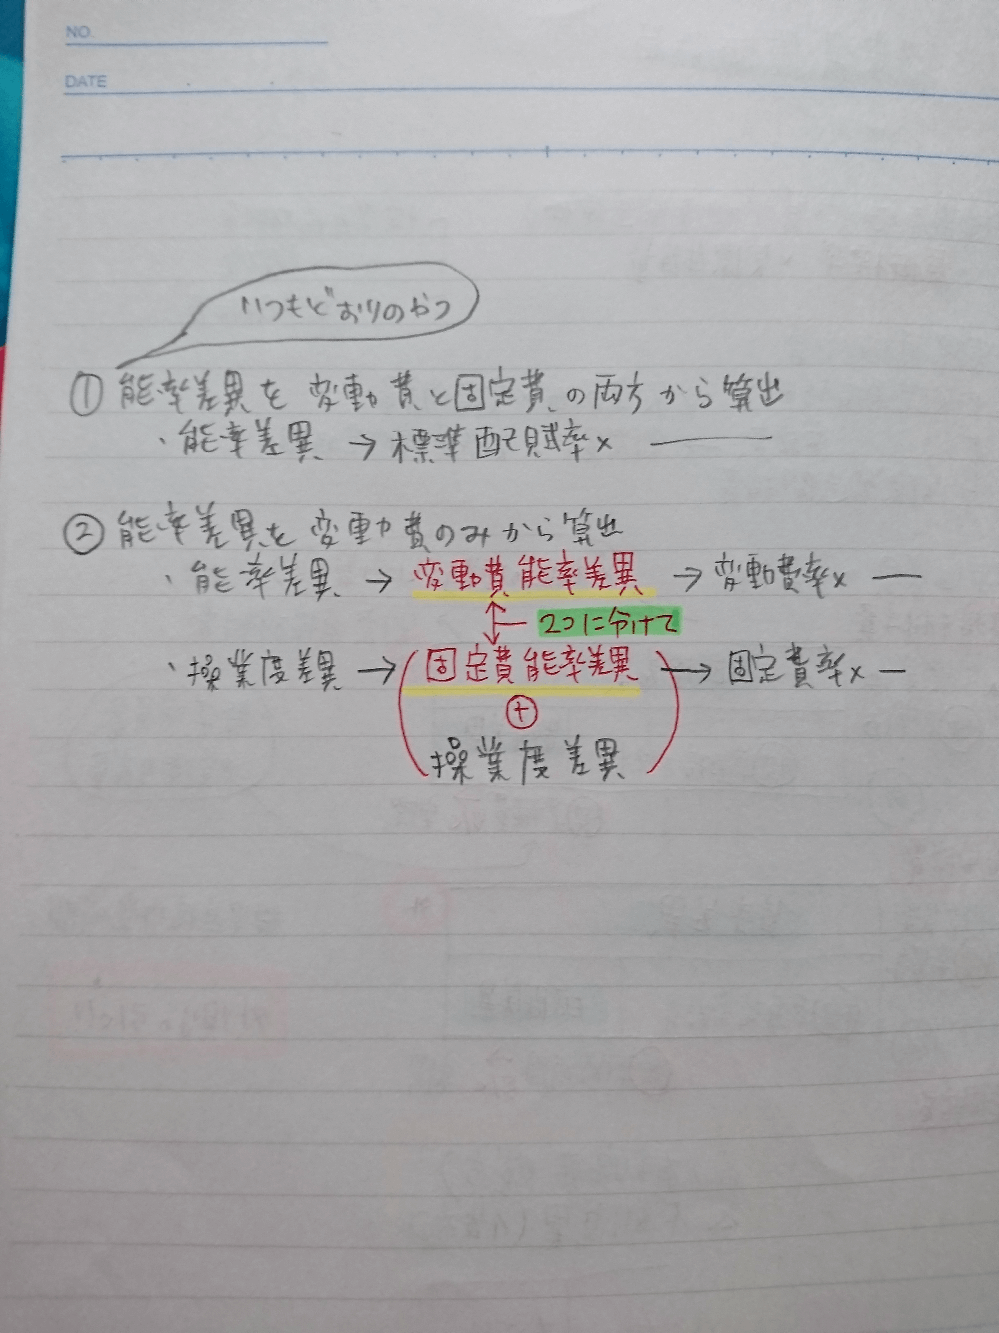 NO.
DATE
いつもどおりのやつ
① 能率差異を変動費と固定費の両方から算出
・能率差異 → 標準配賦率× ―
② 能率差異を変動費のみから算出
・能率差異 → 変動費能率差異 → 変動費率× ―
2つに分けて
・操業度差異 → (固定費能率差異) → 固定費率× ―
+
操業度差異